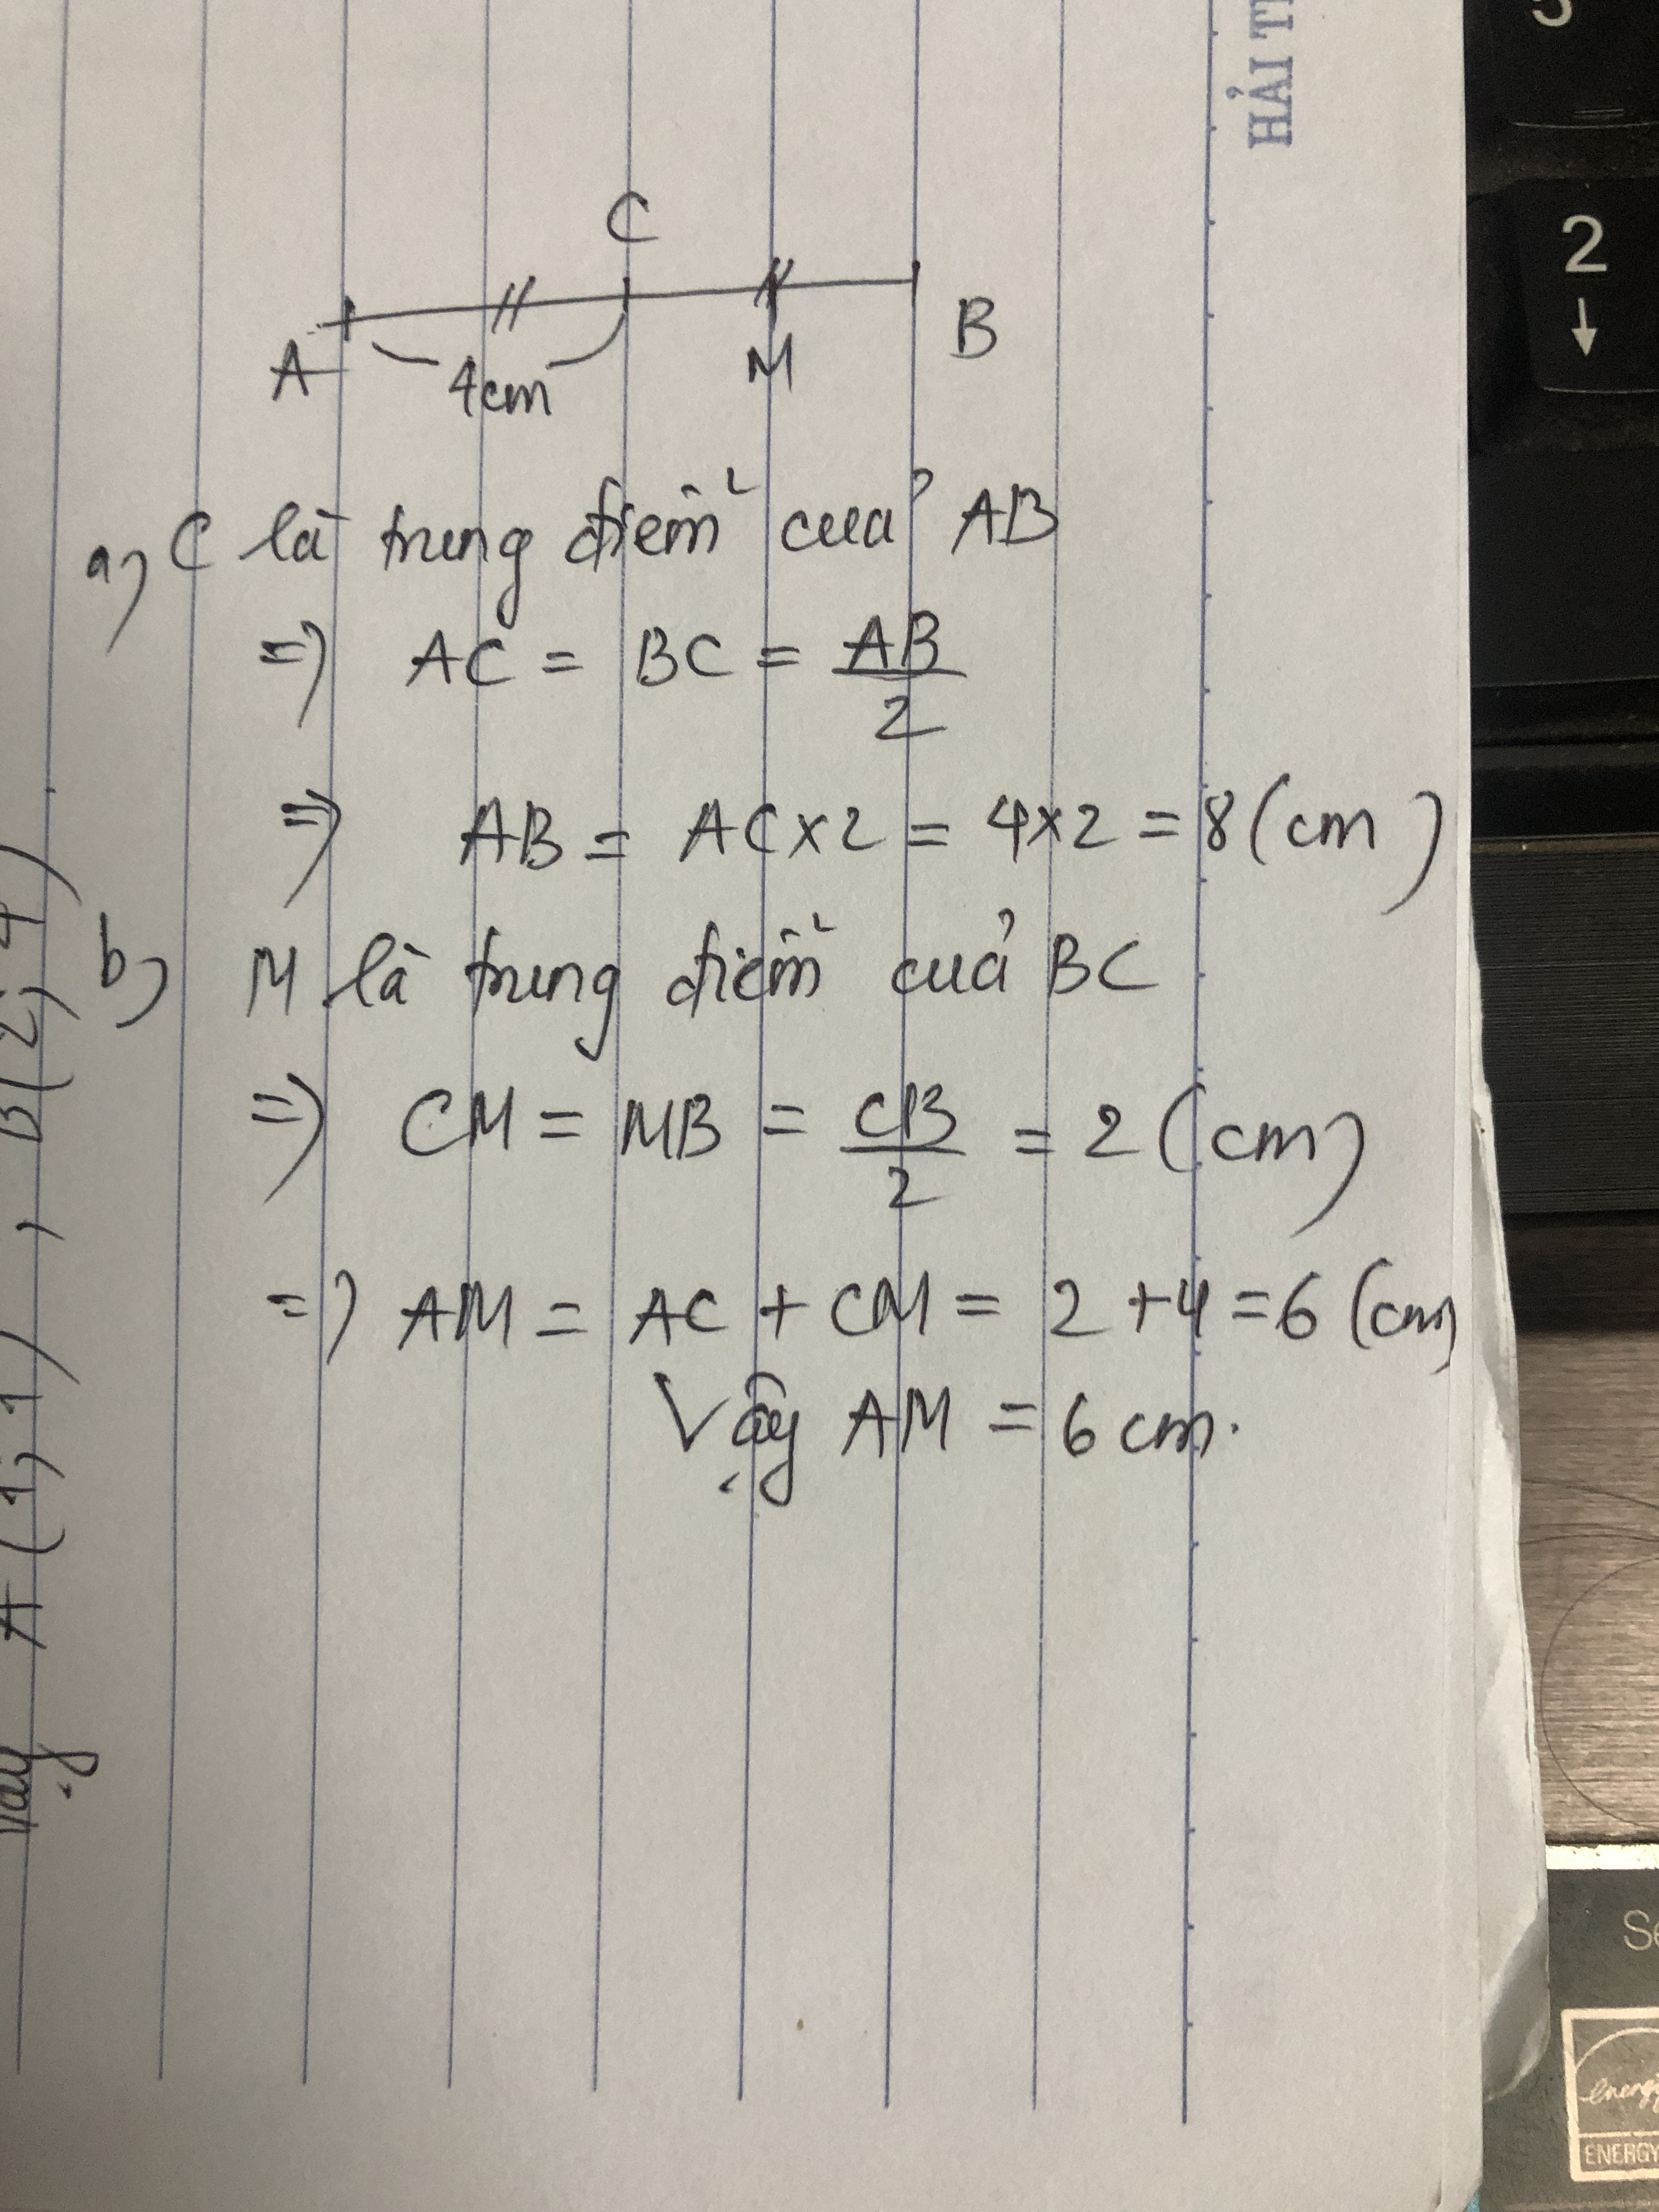 HẢI T
C
A
4cm
M
B
a) C là trung điểm của AB
=> AC = BC = AB/2
=> AB = AC x 2 = 4 x 2 = 8 (cm)
b) M là trung điểm của BC
=> CM = MB = CB/2 = 2 (cm)
=> AM = AC + CM = 2 + 4 = 6 (cm)
Vậy AM = 6 cm.
Vậy A (1; 1) , B (2; 4)
2
Se
energy
ENERGY